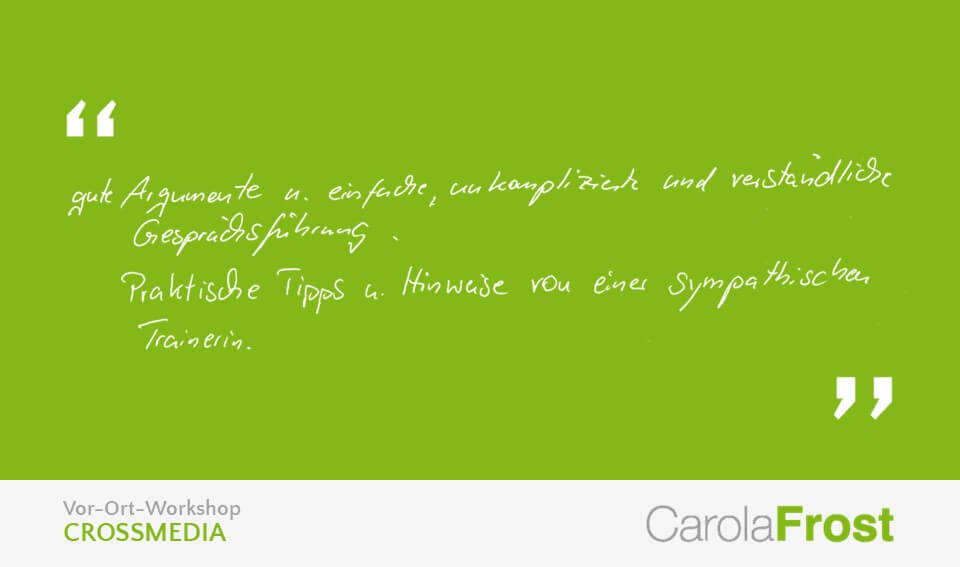 “
gute Argumente u. einfache, unkomplizierte und verständliche
Gesprächsführung.
Praktische Tipps u. Hinweise von einer sympathischen
Trainerin.
”
Vor-Ort-Workshop
CROSSMEDIA
CarolaFrost